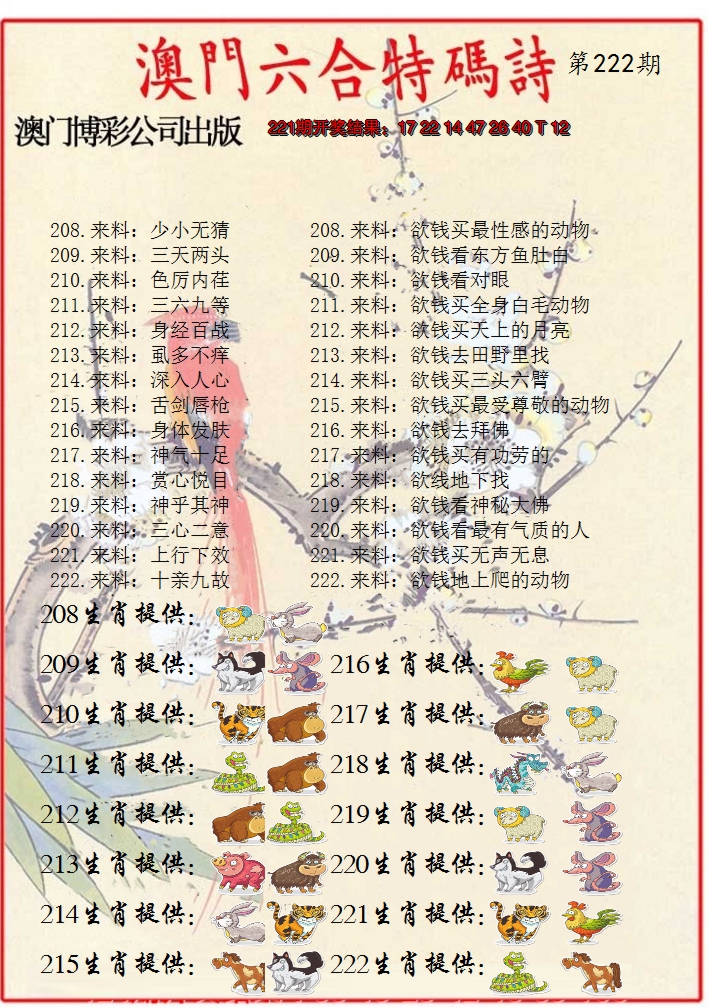 澳門六合特碼詩 第222期
澳门博彩公司出版 221期开奖结果：17 22 14 47 26 40 T 12
208.来料：少小无猜 208.来料：欲钱买最性感的动物
209.来料：三天两头 209.来料：欲钱看东方鱼肚白
210.来料：色厉内荏 210.来料：欲钱看对眼
211.来料：三六九等 211.来料：欲钱买全身白毛动物
212.来料：身经百战 212.来料：欲钱买天上的月亮
213.来料：虱多不痒 213.来料：欲钱去田野里找
214.来料：深入人心 214.来料：欲钱买三头六臂
215.来料：舌剑唇枪 215.来料：欲钱买最受尊敬的动物
216.来料：身体发肤 216.来料：欲钱去拜佛
217.来料：神气十足 217.来料：欲钱买有功劳的
218.来料：赏心悦目 218.来料：欲线地下找
219.来料：神乎其神 219.来料：欲钱看神秘大佛
220.来料：三心二意 220.来料：欲钱看最有气质的人
221.来料：上行下效 221.来料：欲钱买无声无息
222.来料：十亲九故 222.来料：欲钱地上爬的动物
208生肖提供：
209生肖提供： 216生肖提供：
210生肖提供： 217生肖提供：
211生肖提供： 218生肖提供：
212生肖提供： 219生肖提供：
213生肖提供： 220生肖提供：
214生肖提供： 221生肖提供：
215生肖提供： 222生肖提供：